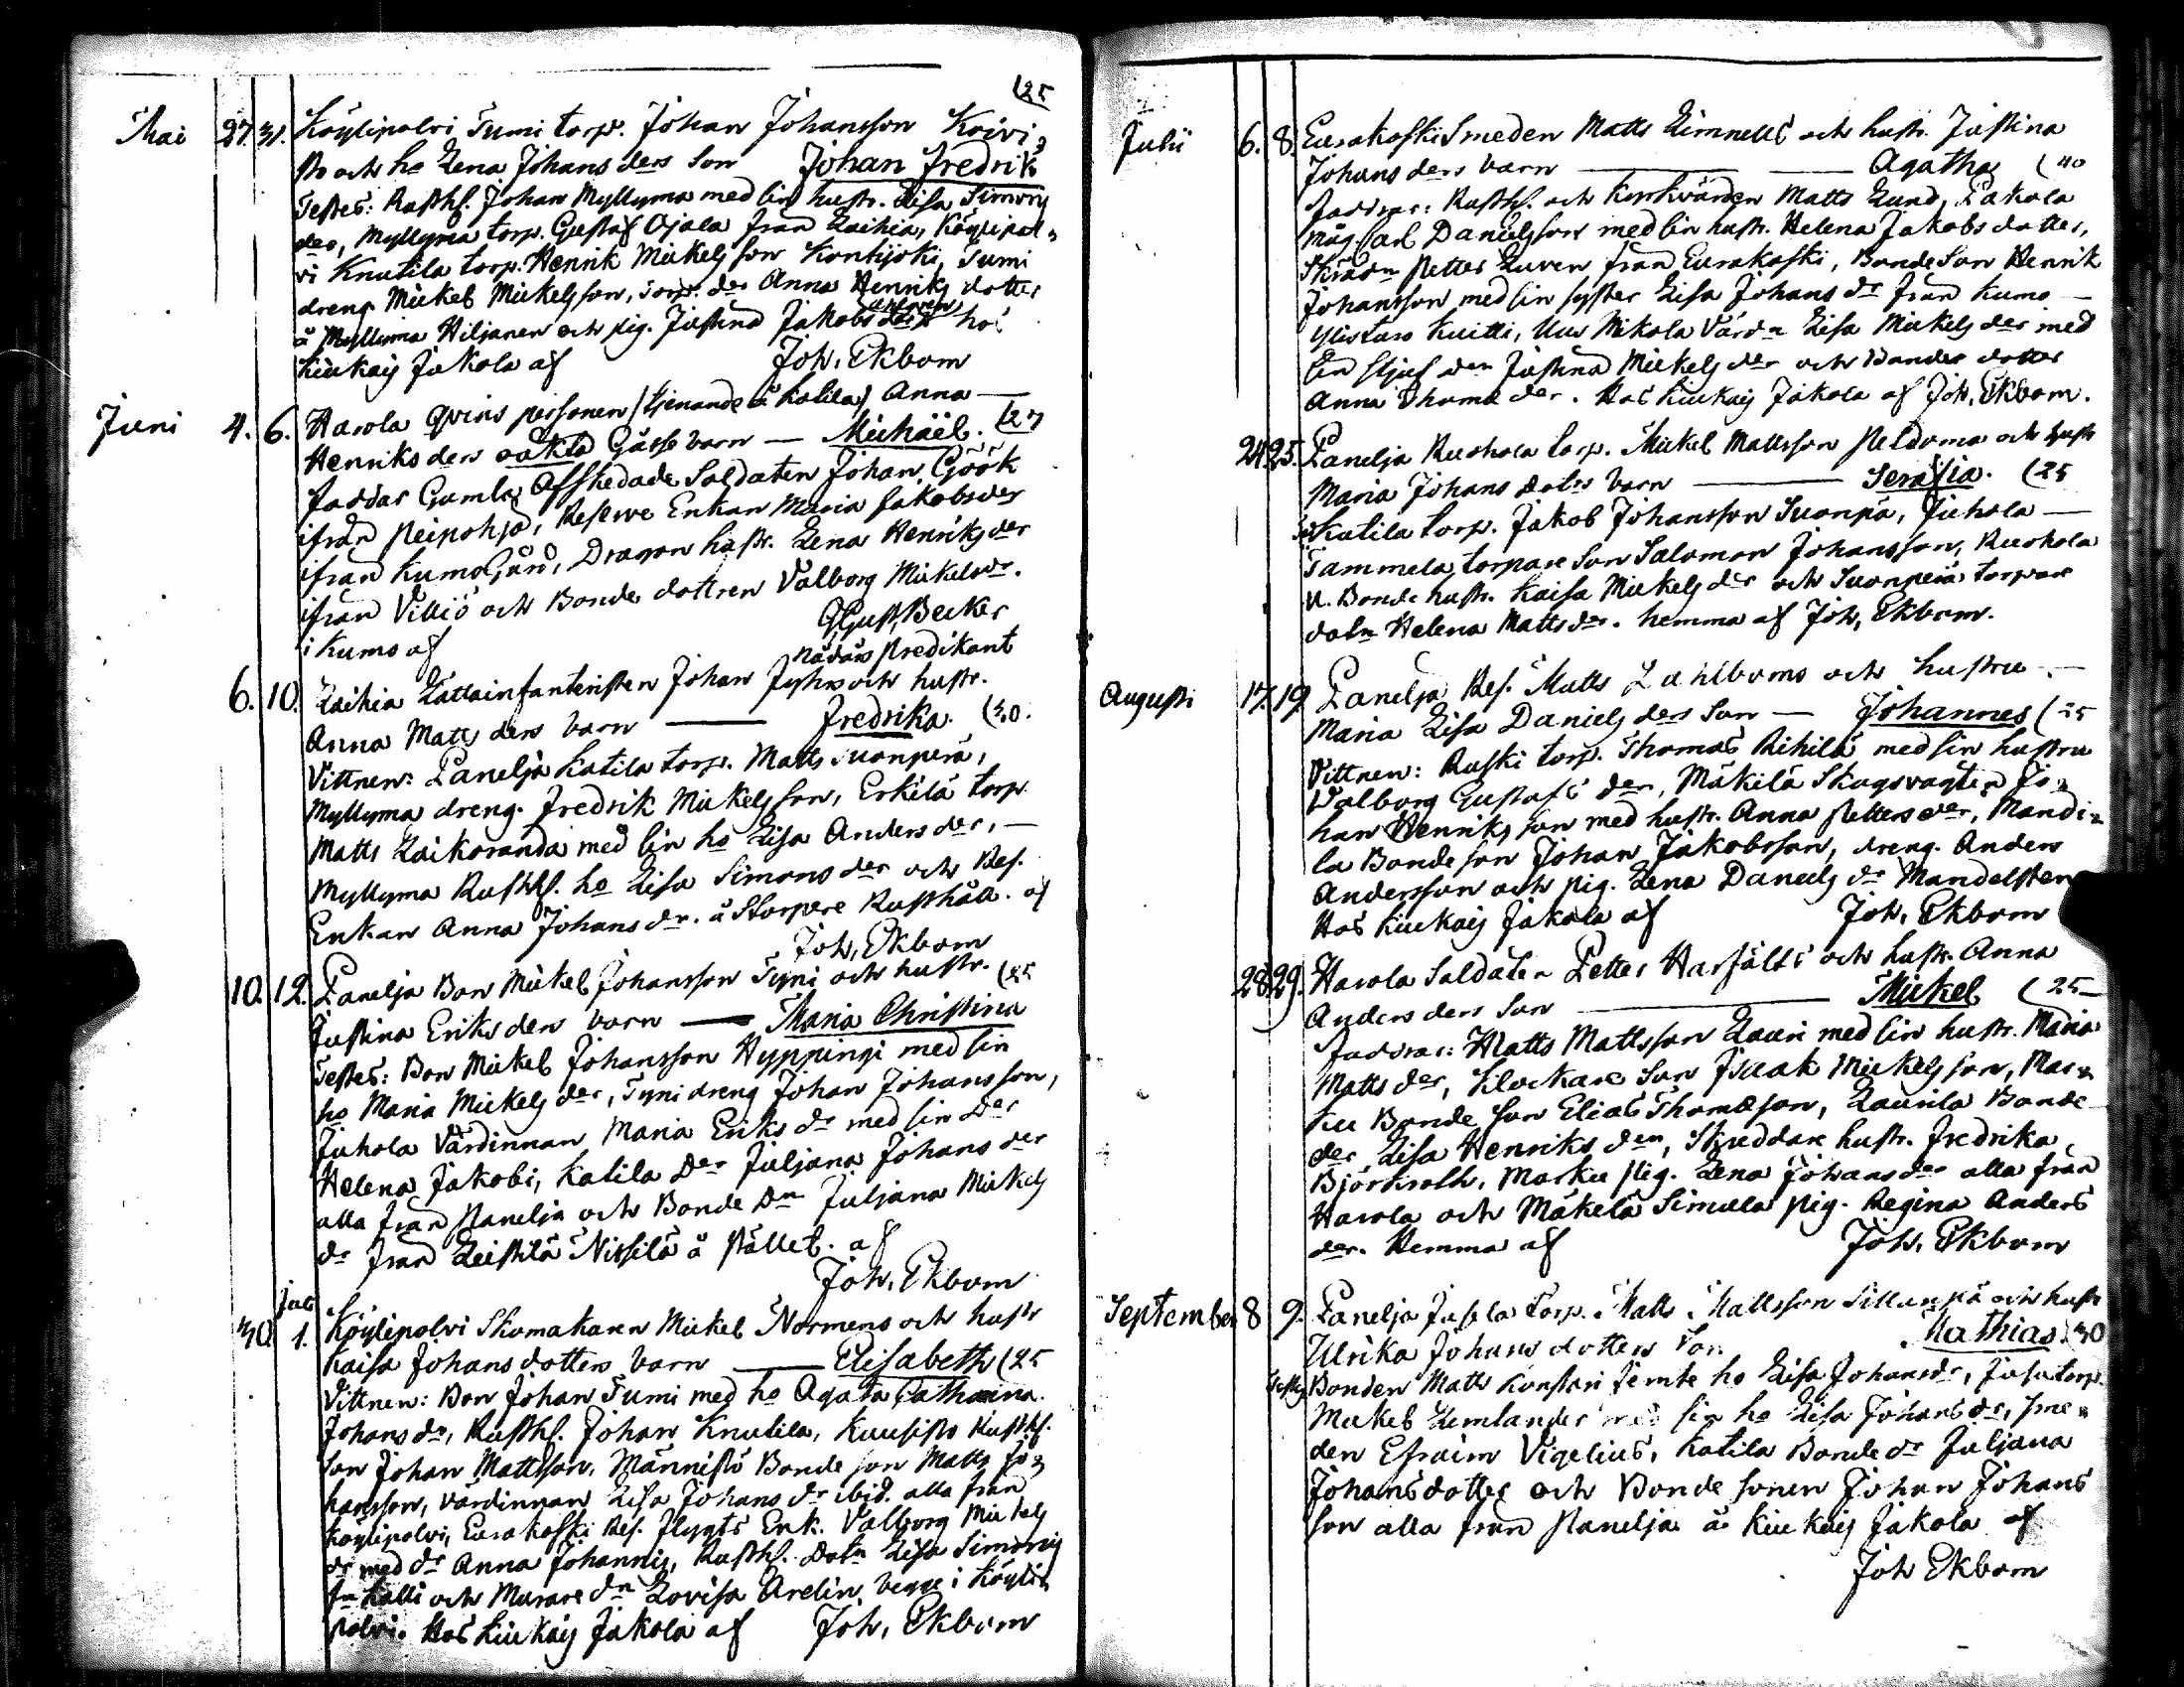 (25
Mai 27. 31. Köylipolvi Tumi torp. Johan Johansson Koivi=
sto och ho Lena Johans ders son Johan Fredrik
Testes: Rusth. Johan Myllyma med sin hustr. Lisa Simons
der, Myllyma torp. Gustaf Ojala från Laihia, Köylipol=
vi Knutila torp. Henrik Mickelsson Kontijoki, Tumi
dreng Mickel Mickelsson, torp. der Anna Henriks dotter
å Myllyma Hiljanen och pig. Justina Jakobs der hos
Kiukais Jakola af Joh. Ekbom
Juni 4. 6. Harola Qvins personen (tjenande å Katila) Anna
Henriks ders oäkta Gåsse barn — Michaël. (27
Faddar Gamla Afskedade Soldaten Johan Göök
ifrån Peipohja, Reserve Enkan Maria Jakobs der
ifrån Kumo Gård, Dragon hustr. Lena Henriks der
ifrån Villiö och Bonde dottren Valborg Mickels dr.
i Kumo af G Gust. Becker
nådårs Predikant
6. 10. Laihia Lattainfanteristen Johan och hustr.
Anna Matts ders barn — Fredrika. (30.
Vittnen: Panelja Katila torp. Matts Suonperä,
Myllyma dreng. Fredrik Mickelsson, Erkilä torp
Matts Laikoranda med sin ho Lisa Anders der, —
Myllyma Rusth. ho Lisa Simons der och Res.
Enkan Anna Johans dr. å Storpere Rusthåll. af
Joh. Ekbom
10. 12. Panelja Bon Mickel Johansson Tyni och hustr. (25
Justina Eriks ders barn — Maria Christina
Testes: Bon Mickel Johansson Hyppingi med sin
ho Maria Mickels der, Tyni dreng Johan Johansson,
Juhola Värdinnan Maria Eriks dr med sin der
Helena Jakobi, Katila Der Juljana Johans der
alla från Panelja och Bonde Dn Juljana Mickels
dr från Leistilä Nissilä å stället. af
Joh. Ekbom
30. Jul. 1. Köylipolvi Skomakaren Mickel Normens och hustr
Kaisa Johans dotters barn — Elisabeth (25
Vittnen: Bon Johan Tumi med ho Agata Catharina
Johans dr, Rusth. Johan Knutila, Kuusisto Rusth.
son Johan Mattsson, Männistö Bonde son Matts Jo=
hansson, värdinnan Lisa Johans dr ibid. alla från
Köylipolvi, Eurakoski Res. Flygts Enk. Valborg Mickels
dr med dr Anna Johannis, Rusth. Dotn Lisa Simonis
Kalli och Murare dn Lovisa Arelin, begge i Köyli=
polvi. Hos Kiukais Jakola af Joh. Ekbom
Julii 6. 8. Eurakoski Smeden Matts Limnells och hustr. Justina
Johans ders barn — Agatha (40
Faddrar: Rusth. och Kyrkvärden Matts Lund, Pakola
måg Carl Danielsson med sin hustr. Helena Jakobs dotter,
Skrädn Petter Luren från Eurakoski, Bonde Son Henrik
Johansson med sin syster Lisa Johans dr från Kumo —
Ylistaro Kuitti, Uus Nikola Värdn Lisa Mickels der med
sin styf der Justina Mickels der och Bondes dotter
Anna Thoma der. Hos Kiukais Jakola af Joh. Ekbom.
24. 25. Panelja Ruohola torp. Mickel Mattsson Peldoma och hustr
Maria Johans doters barn — Serafia. (25
Katila torp. Jakob Johansson Suonpä, Juhola —
Tammela torpare Son Salomon Johansson, Ruohola
n. Bonde hustr. Kaisa Mickels dr och Suonperä torpare
dotn Helena Matts dr. hemma af Joh. Ekbom.
Augusti 17. 19. Panelja Res. Matts Lahlboms och hustru —
Maria Lisa Daniels ders Son — Johannes (25
Vittnen: Ruski torp. Thomas Rihilä med sin hustru
Valborg Gustafs der, Mäkilä Skogsvagten Jo=
han Henriksson med hustr. Anna Petters der, Mandi=
la Bonde son Johan Jakobsson, dreng. Anders
Andersson och pig. Lena Daniels dr Mandelsten
Hos Kiukais Jakola af Joh. Ekbom
28. 29. Harola Soldaten Petter Harfälts och hustr. Anna
Anders ders Son — Mickel (25
Faddrar: Matts Mattsson Lauri med sin hustr. Maria
Matts der, Klockare Son Isaak Mickelsson, Mar=
ku Bonde Son Elias Thomasson, Laurila Bonde
der Lisa Henriks der, Skreddare hustr. Fredrika
Björkroth, Marku pig. Lena Johans der alla från
Harola och Mäkelä Simula pig. Regina Anders
der. Hemma af Joh. Ekbom
September 8 9. Panelja Jusela Torp. Matts Mattsson Sillanpä och hustr
Ulrika Johans dotters Son Mathias. (30
Testes Bonden Matts Konstari jemte ho Lisa Johans dr, Jusu torp.
Mickel Lemlander med sin ho Lisa Johans dr, sme=
den Efraim Vigelius, Katila Bonde dr Juljana
Johans dotter och Bonde sonen Johan Johans
son alla från Panelja å Kiukais Jakola af
Joh Ekbom